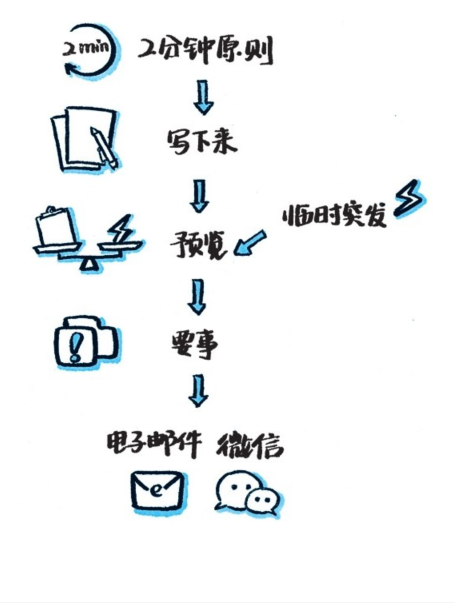 2min 2分钟原则
写下来
临时突发
预览
!
要事
电子邮件 微信
e